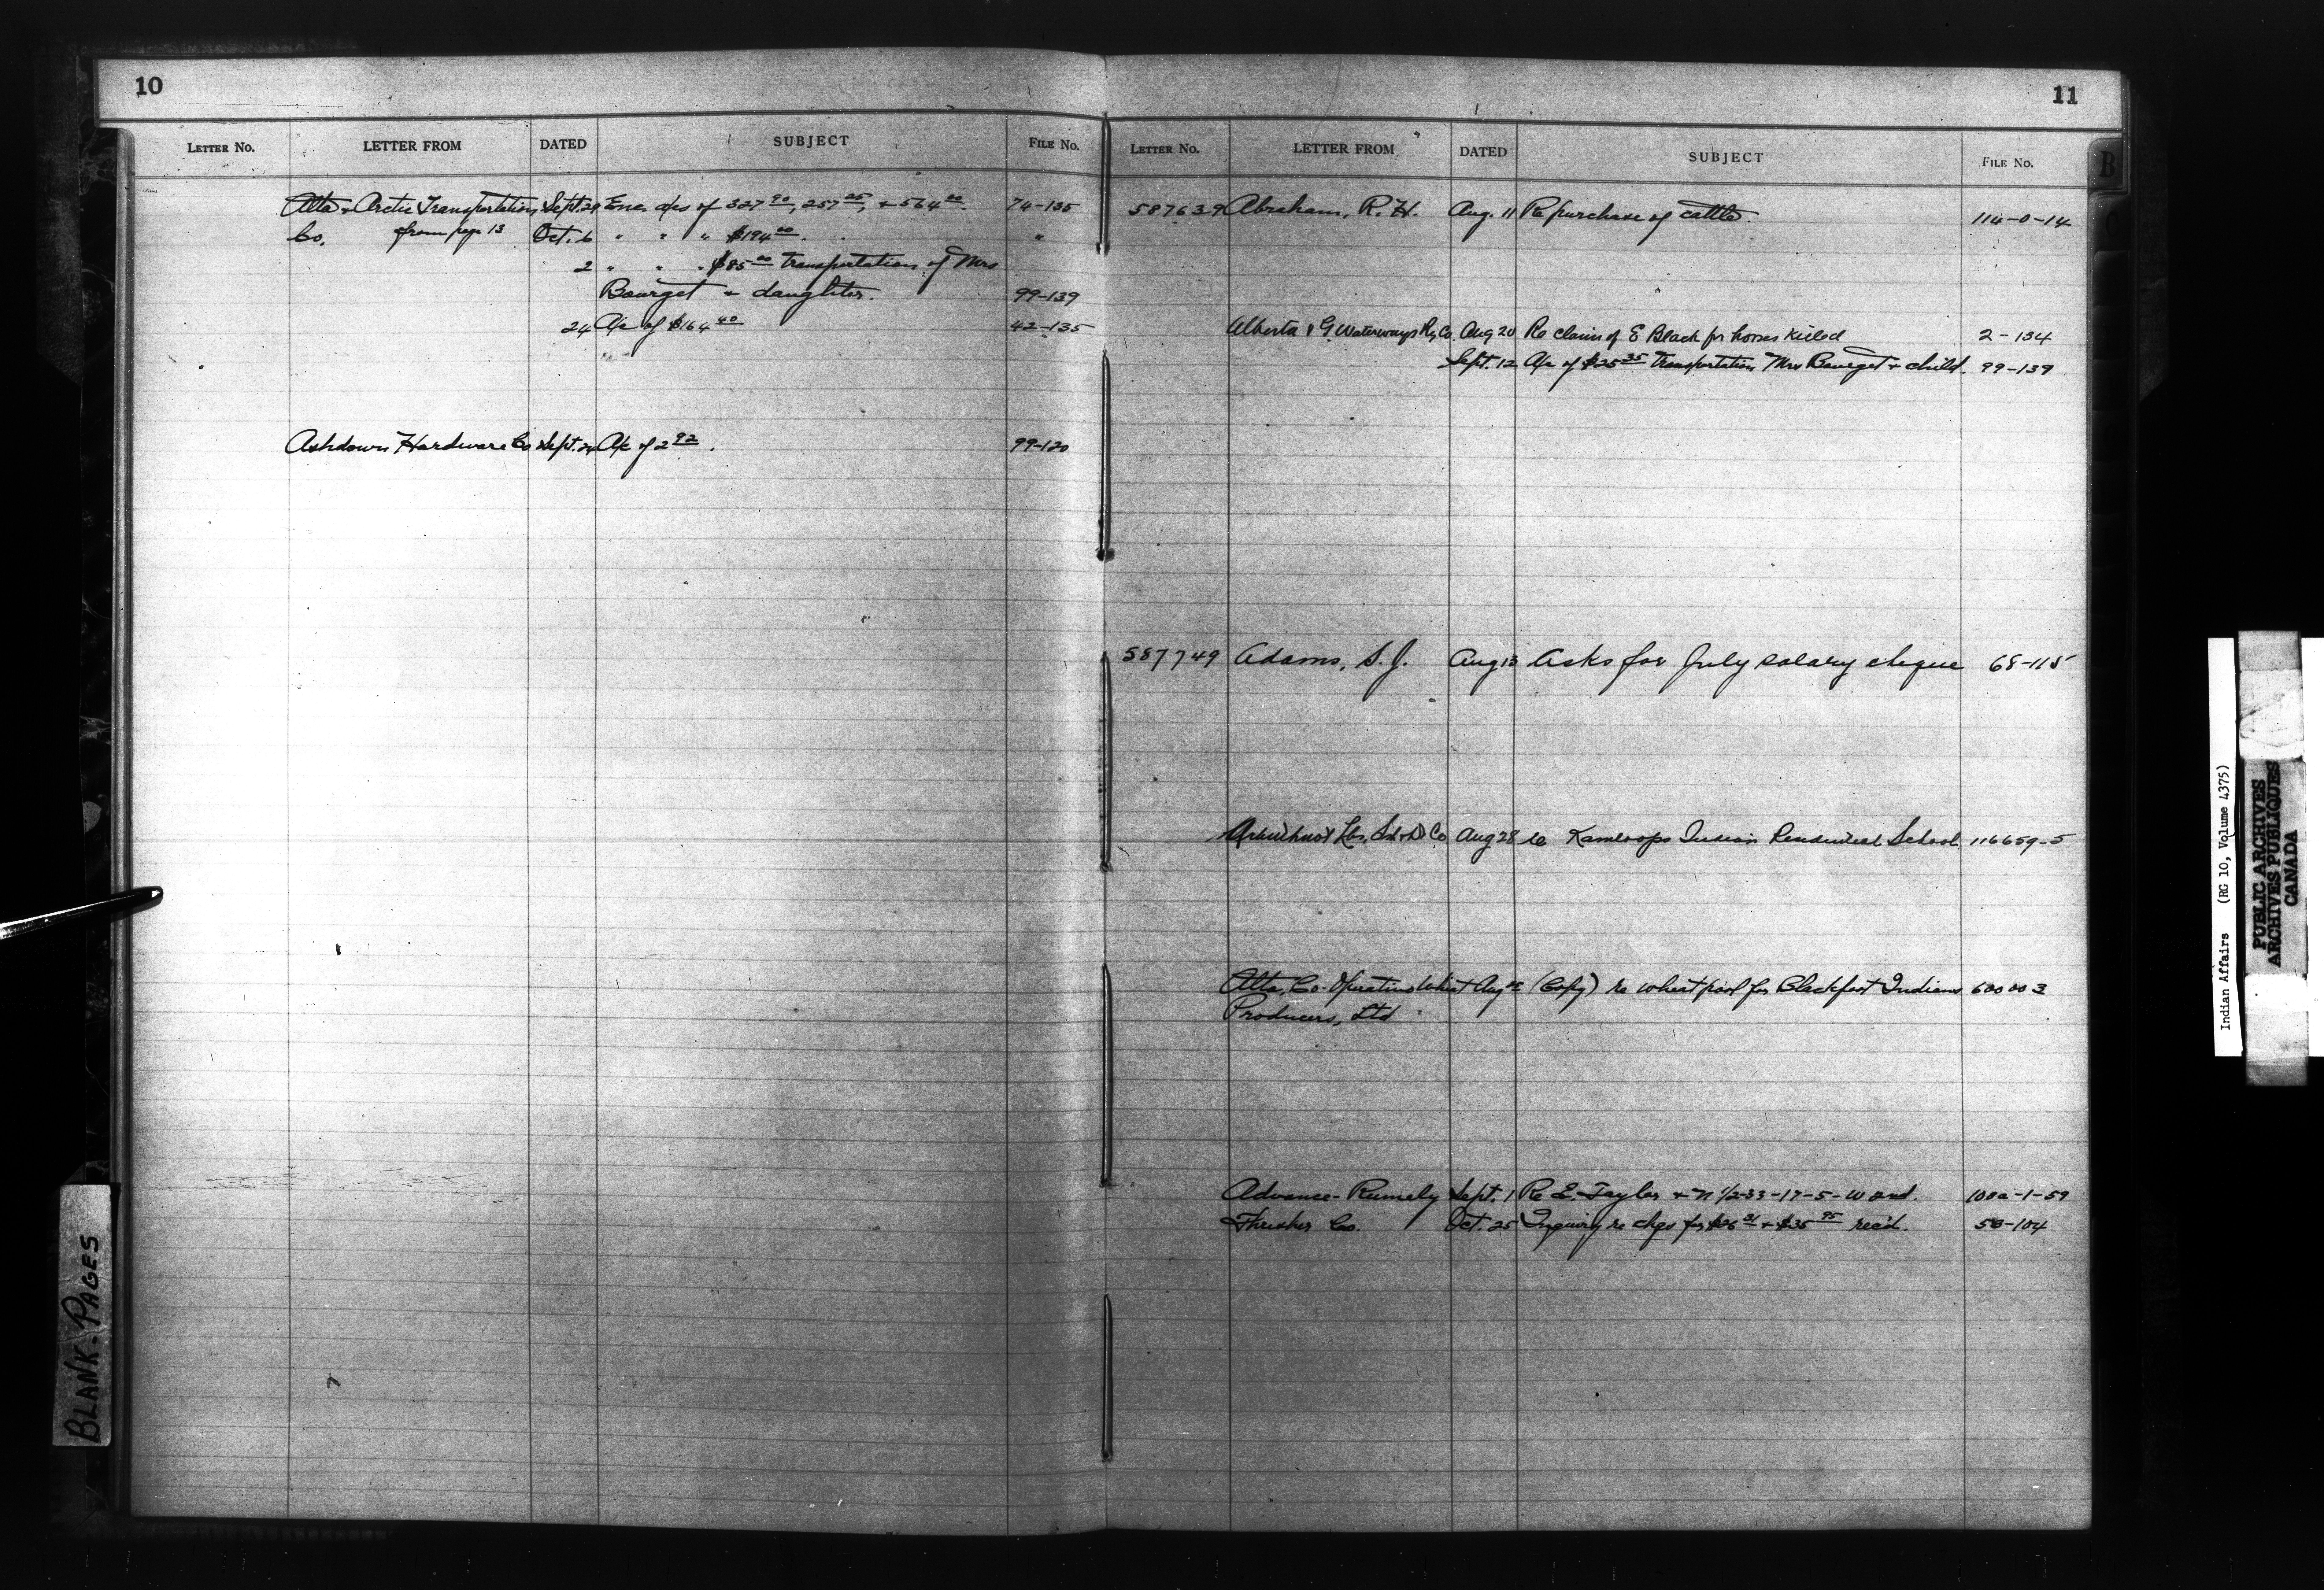 10
LETTER NO. LETTER FROM DATED SUBJECT FILE NO.
Alta + Arctic Transportation Sept. 29 Enc. a/cs of 327 90, 257 25, + 564 00. 74-135
Co. from page 13 Oct. 6 " " " $194 00. "
2 " " " $85 00 transportation of Mrs
Bourget + daughter. 99-139
24 A/c of $164 40 42-135
Ashdown Hardware Co Sept. 24 A/c of 2 92. 99-120
11
LETTER NO. LETTER FROM DATED SUBJECT FILE NO.
587639 Abraham, R. H. Aug. 11 Re purchase of cattle. 114-0-14
Alberta & G. Waterways Ry Co. Aug 20 Re claim of E Black for horses killed 2-134
Sept. 12 A/c of $25 35 transportation Mrs Bourget + child. 99-139
587749 Adams, S. J. Aug 13 Asks for July salary cheque 68-115
Co Aug 28 re Kamloops Indian Residential School. 116659-5
Alta. Co-Operative Wheat Aug (Copy) re wheat pool for Blackfoot Indians 600003
Producers, Ltd
Advance-Rumely Sept. 1 Re E. Taylor + N 1/2-33-17-5-W 2nd. 100a-1-59
Thresher Co. Oct. 25 Inquiry re chqs for $26 31 + $35 95 rec'd. 50-104
B
C
BLANK-PAGES
Indian Affairs (RG 10, Volume 4375)
PUBLIC ARCHIVES
ARCHIVES PUBLIQUES
CANADA